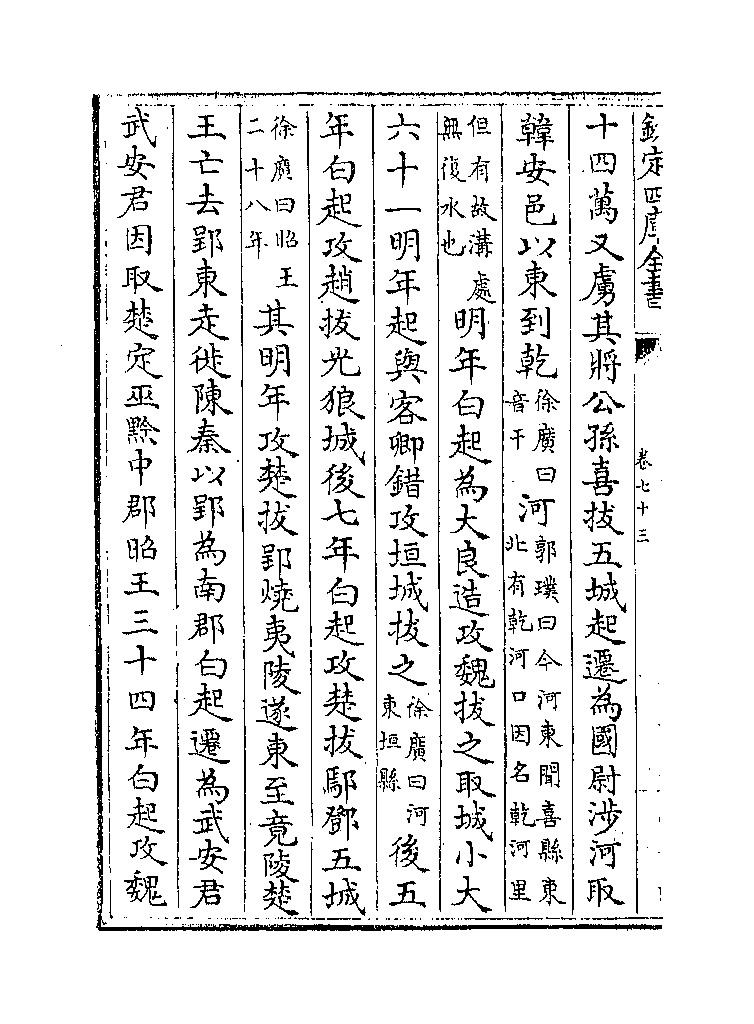 欽定四庫全書
卷七十三
十四萬又虜其將公孫喜拔五城起遷為國尉渉河取
韓安邑以東到乾徐廣曰音干河郭璞曰今河東聞喜縣東北有乾河口因名乾河里
但有故溝處無復水也明年白起為大良造攻魏拔之取城小大
六十一明年起與客卿錯攻垣城拔之徐廣曰河東垣縣後五
年白起攻趙拔光狼城後七年白起攻楚拔鄢鄧五城
徐廣曰昭王二十八年其明年攻楚拔郢燒夷陵遂東至竟陵楚
王亡去郢東走徙陳秦以郢為南郡白起遷為武安君
武安君因取楚定巫黔中郡昭王三十四年白起攻魏